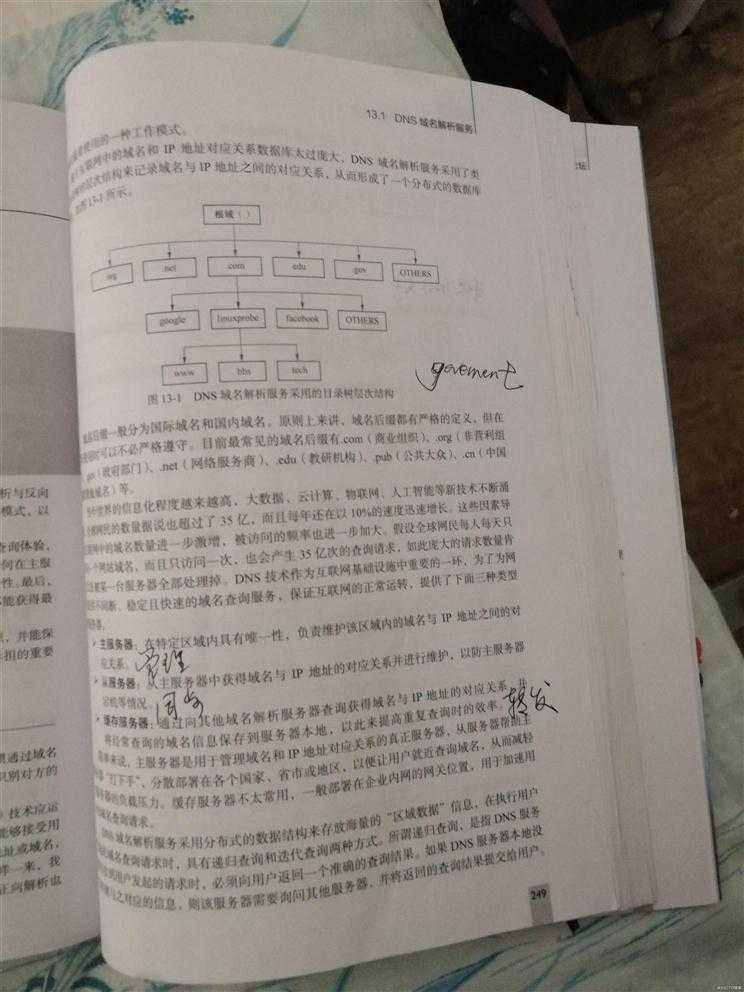 13.1 DNS 域名解析服务
使用的一种工作模式。
联网中的域名和 IP 地址对应关系数据库太过庞大，DNS 域名解析服务采用了类
的层次结构来记录域名与 IP 地址之间的对应关系，从而形成了一个分布式的数据库
图 13-1 所示。
根域（.）
.org .net .com .edu .gov OTHERS
google linuxprobe facebook OTHERS
www bbs tech
图 13-1 DNS 域名解析服务采用的目录树层次结构
goverment
后缀一般分为国际域名和国内域名。原则上来讲，域名后缀都有严格的定义，但在
时可以不必严格遵守。目前最常见的域名后缀有.com（商业组织）、.org（非营利组
.gov（政府部门）、.net（网络服务商）、.edu（教研机构）、.pub（公共大众）、.cn（中国
域名）等。
世界的信息化程度越来越高，大数据、云计算、物联网、人工智能等新技术不断涌
网民的数量据说也超过了 35 亿，而且每年还在以 10%的速度迅速增长。这些因素导
网中的域名数量进一步激增，被访问的频率也进一步加大。假设全球网民每人每天只
一个网站域名，而且只访问一次，也会产生 35 亿次的查询请求，如此庞大的请求数量肯
某一台服务器全部处理掉。DNS 技术作为互联网基础设施中重要的一环，为了为网
不间断、稳定且快速的域名查询服务，保证互联网的正常运转，提供了下面三种类型
主服务器：在特定区域内具有唯一性，负责维护该区域内的域名与 IP 地址之间的对
应关系。 管理
从服务器：从主服务器中获得域名与 IP 地址的对应关系并进行维护，以防主服务器
宕机等情况。 同步
缓存服务器：通过向其他域名解析服务器查询获得域名与 IP 地址的对应关系，并
将经常查询的域名信息保存到服务器本地，以此来提高重复查询时的效率。 转发
来说，主服务器是用于管理域名和 IP 地址对应关系的真正服务器，从服务器帮助主
“打下手”，分散部署在各个国家、省市或地区，以便让用户就近查询域名，从而减轻
器的负载压力。缓存服务器不太常用，一般部署在企业内网的网关位置，用于加速用
域名查询请求。
DNS 域名解析服务采用分布式的数据结构来存放海量的“区域数据”信息，在执行用户
的域名查询请求时，具有递归查询和迭代查询两种方式。所谓递归查询，是指 DNS 服务
用户发起的请求时，必须向用户返回一个准确的查询结果。如果 DNS 服务器本地没
与之对应的信息，则该服务器需要询问其他服务器，并将返回的查询结果提交给用户。
249
析与反向
模式，以
查询体验，
何在主服
性。最后，
能获得最
，并能保
担的重要
通过域名
识别对方的
）技术应运
能够接受用
址或域名，
样一来，我
正向解析也